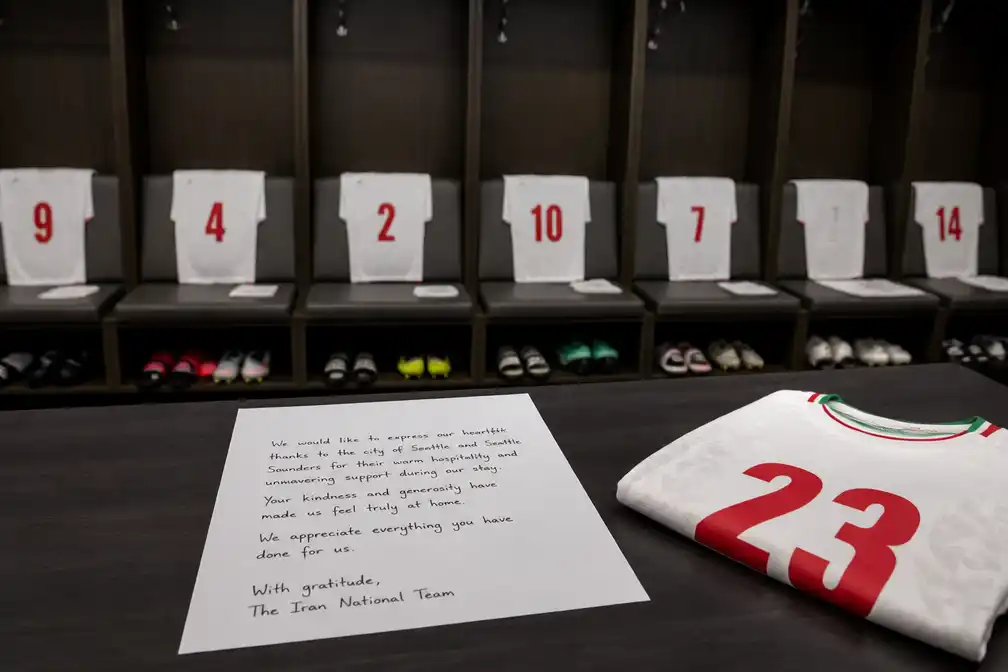 9
4
2
10
7
14
We would like to express our
thanks to the city of Seattle and Seattle
Saunders for their warm hospitality and
unmavering support during our stay.
Your kindness and generosity have
made us feel truly at home.
We appreciate everything you have
done for us.
With gratitude,
The Iran National Team
23